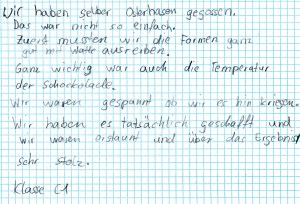 Wir haben selber Osterhasen gegossen.
Das war nicht so einfach.
Zuerst mussten wir die Formen ganz
gut mit Watte ausreiben.
Ganz wichtig war auch die Temperatur
der Schockolade.
Wir waren gespannt ob wir es hin kriegen.
Wir haben es tatsächlich geschafft und
wir waren erstaunt und über das Ergebnis
sehr stolz.
Klasse C1